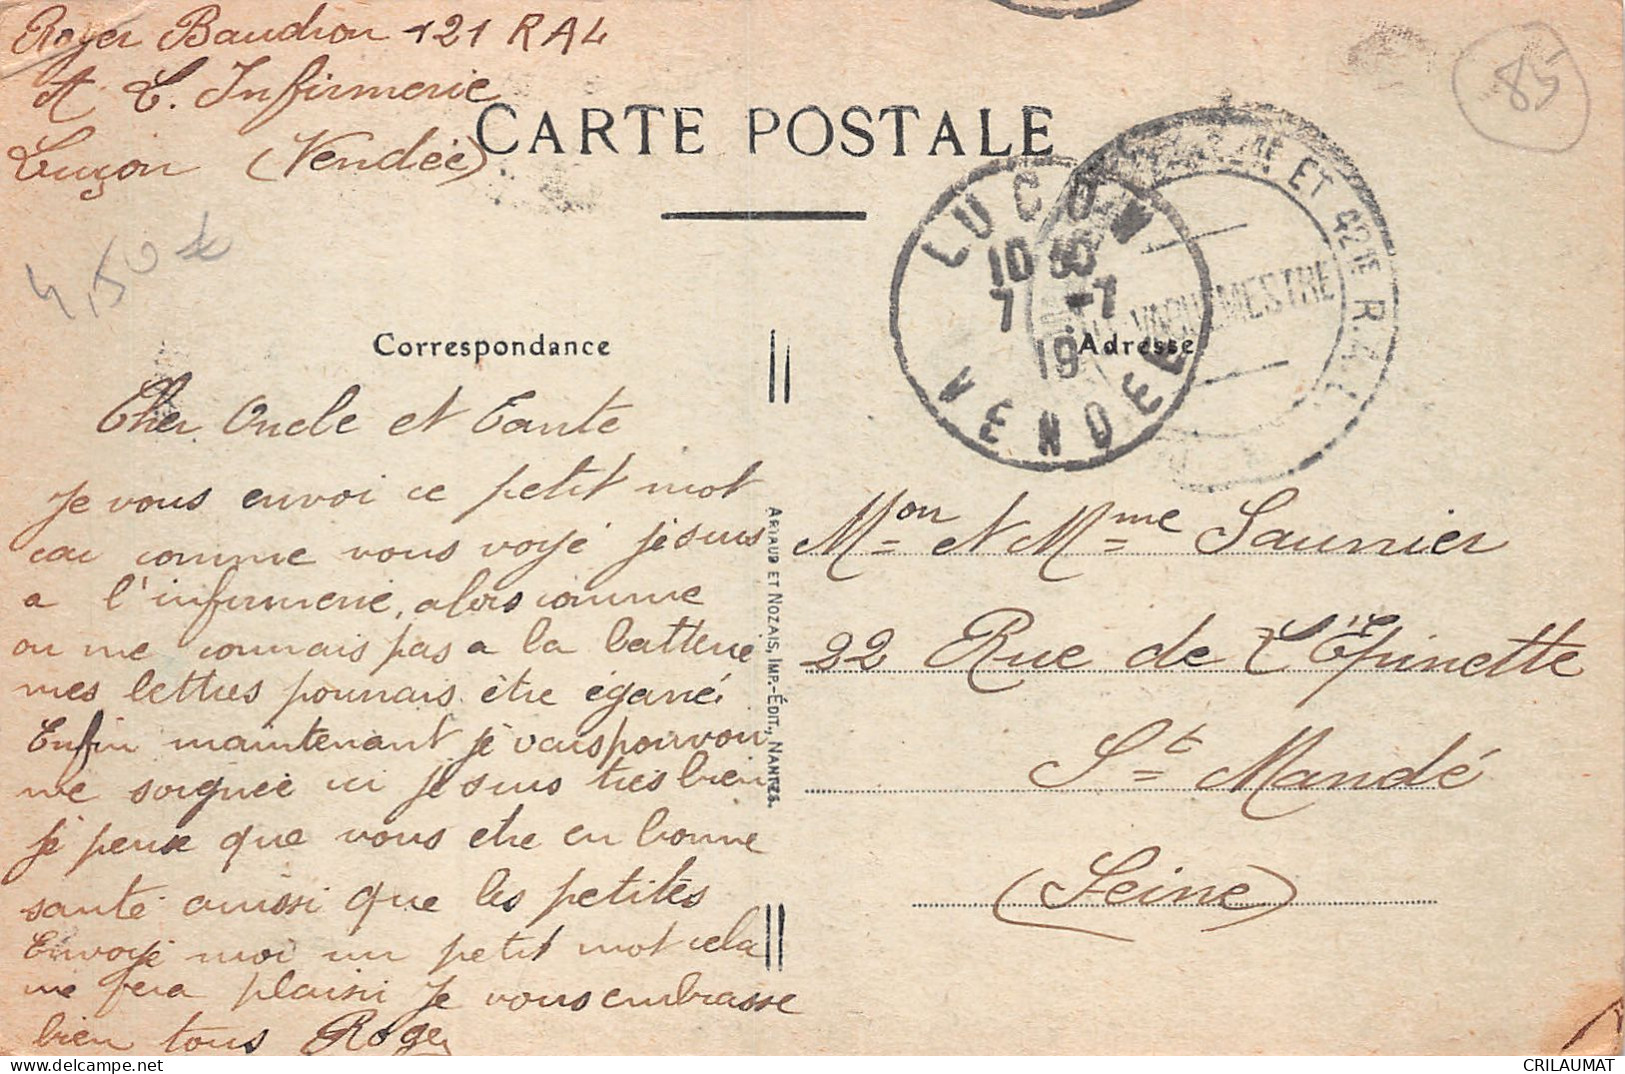 Roger Baudron 121 RAL
A. C. Infirmerie
Luçon (Vendée)
CARTE POSTALE
85
4,50€
LUCON
10 30
7 -7
19
VENDEE
ET 421E R.A.L
VAGUEMESTRE
Correspondance
Adresse
Cher Oncle et Tante
Je vous envoi ce petit mot
car comme vous voyé je suis
a l'infirmerie, alors comme
on me connais pas a la batterie
mes lettres pourrais être égaré
Enfin maintenant je vais pouvoir
me soignée ici je suis très bien
je pense que vous etre en bonne
santé aussi que les petites
Envoyé moi un petit mot cela
me fera plaisir Je vous embrasse
bien tous Roger
ARTAUD ET NOZAIS, IMP.-ÉDIT., NANTES.
Mon et Mme Saunier
22 Rue de L'Épinette
St Mandé
(Seine)
CRILAUMAT